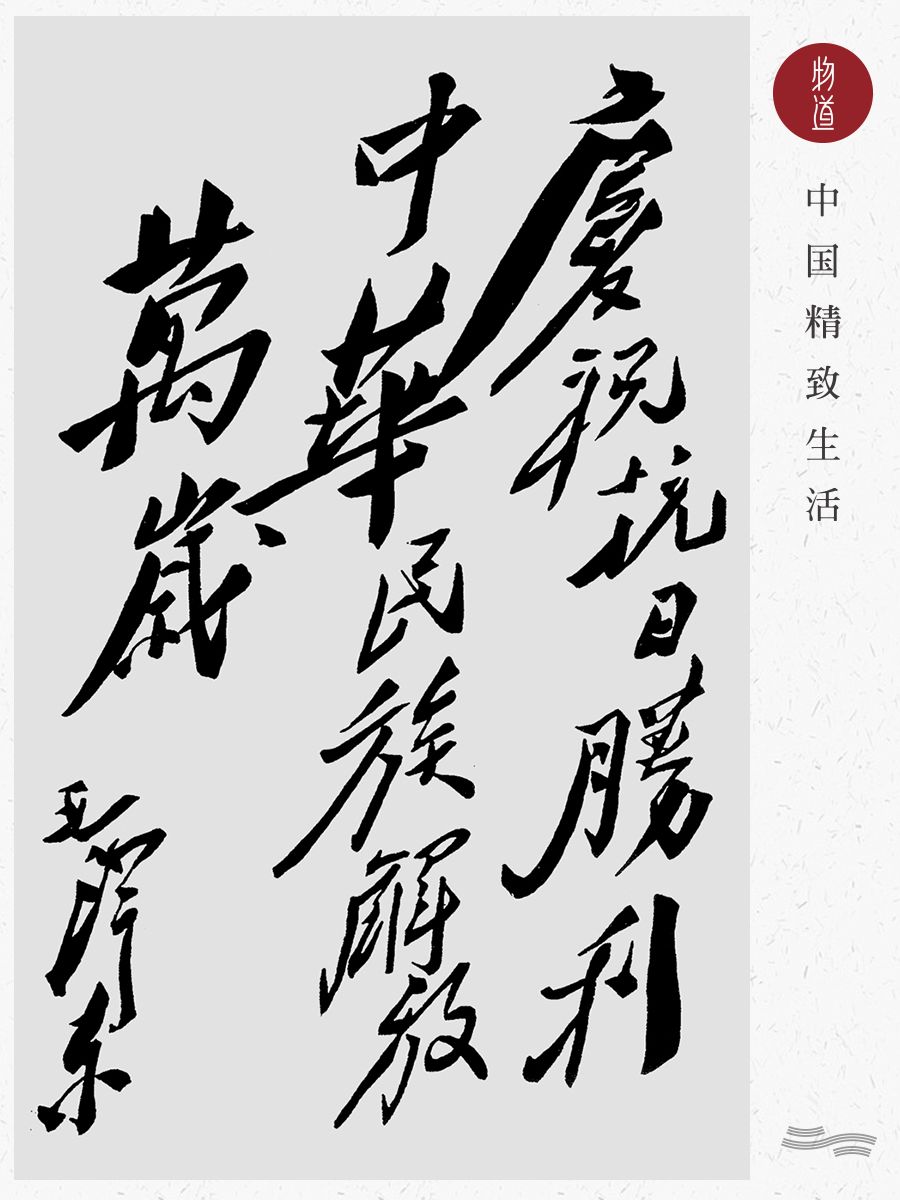 慶祝抗日勝利
中華民族解放
萬歲
毛澤东
物道
中国精致生活